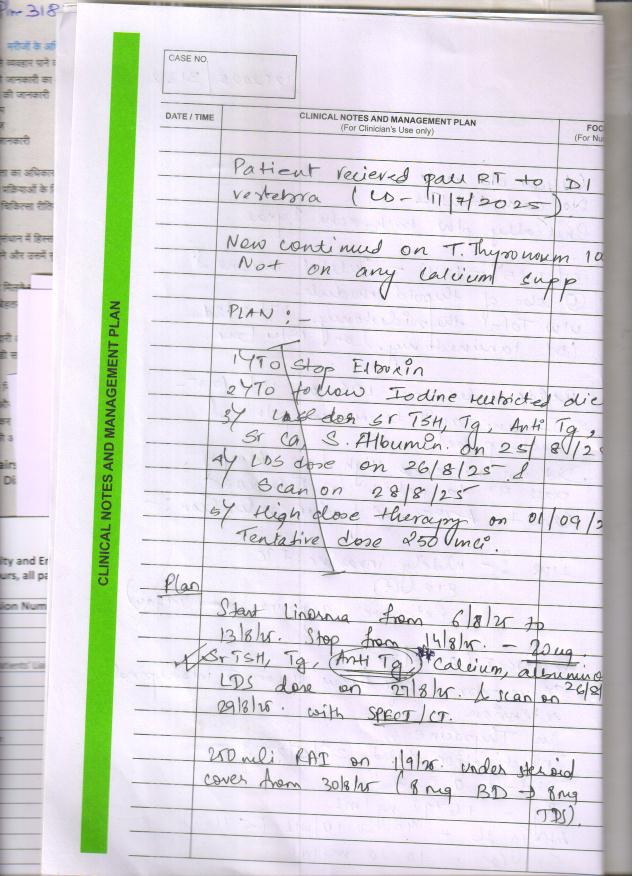 Pm-318
CASE NO.
DATE / TIME
CLINICAL NOTES AND MANAGEMENT PLAN
(For Clinician's Use only)
FOC
(For Nu
Patient recieved pall RT to D1
vertebra ( LD - 11/7/2025).
Now continued on T. Thyronorm 10
Not on any calcium supp
PLAN :-
1) To Stop Eltroxin
2) To follow Iodine restricted die
3) for Sr TSH, Tg, Anti Tg,
Sr Ca, S. Albumin. on 25/8/2
4) LDS dose on 26/8/25 &
Scan on 28/8/25
5) High dose therapy on 01/09/2
Tentative dose 250 mci.
Plan
Start from 6/8/25 to
13/8/25. Stop from 14/8/25. - 20ug.
Sr TSH, Tg, Anti Tg, Calcium, albumin
LDS dose on 27/8/25. & scan on 26/8/
29/8/25. with SPECT/CT.
250 mci RAI on 1/9/25. under steroid
cover from 30/8/25 (8 mg BD → 8mg
TDS).
CLINICAL NOTES AND MANAGEMENT PLAN